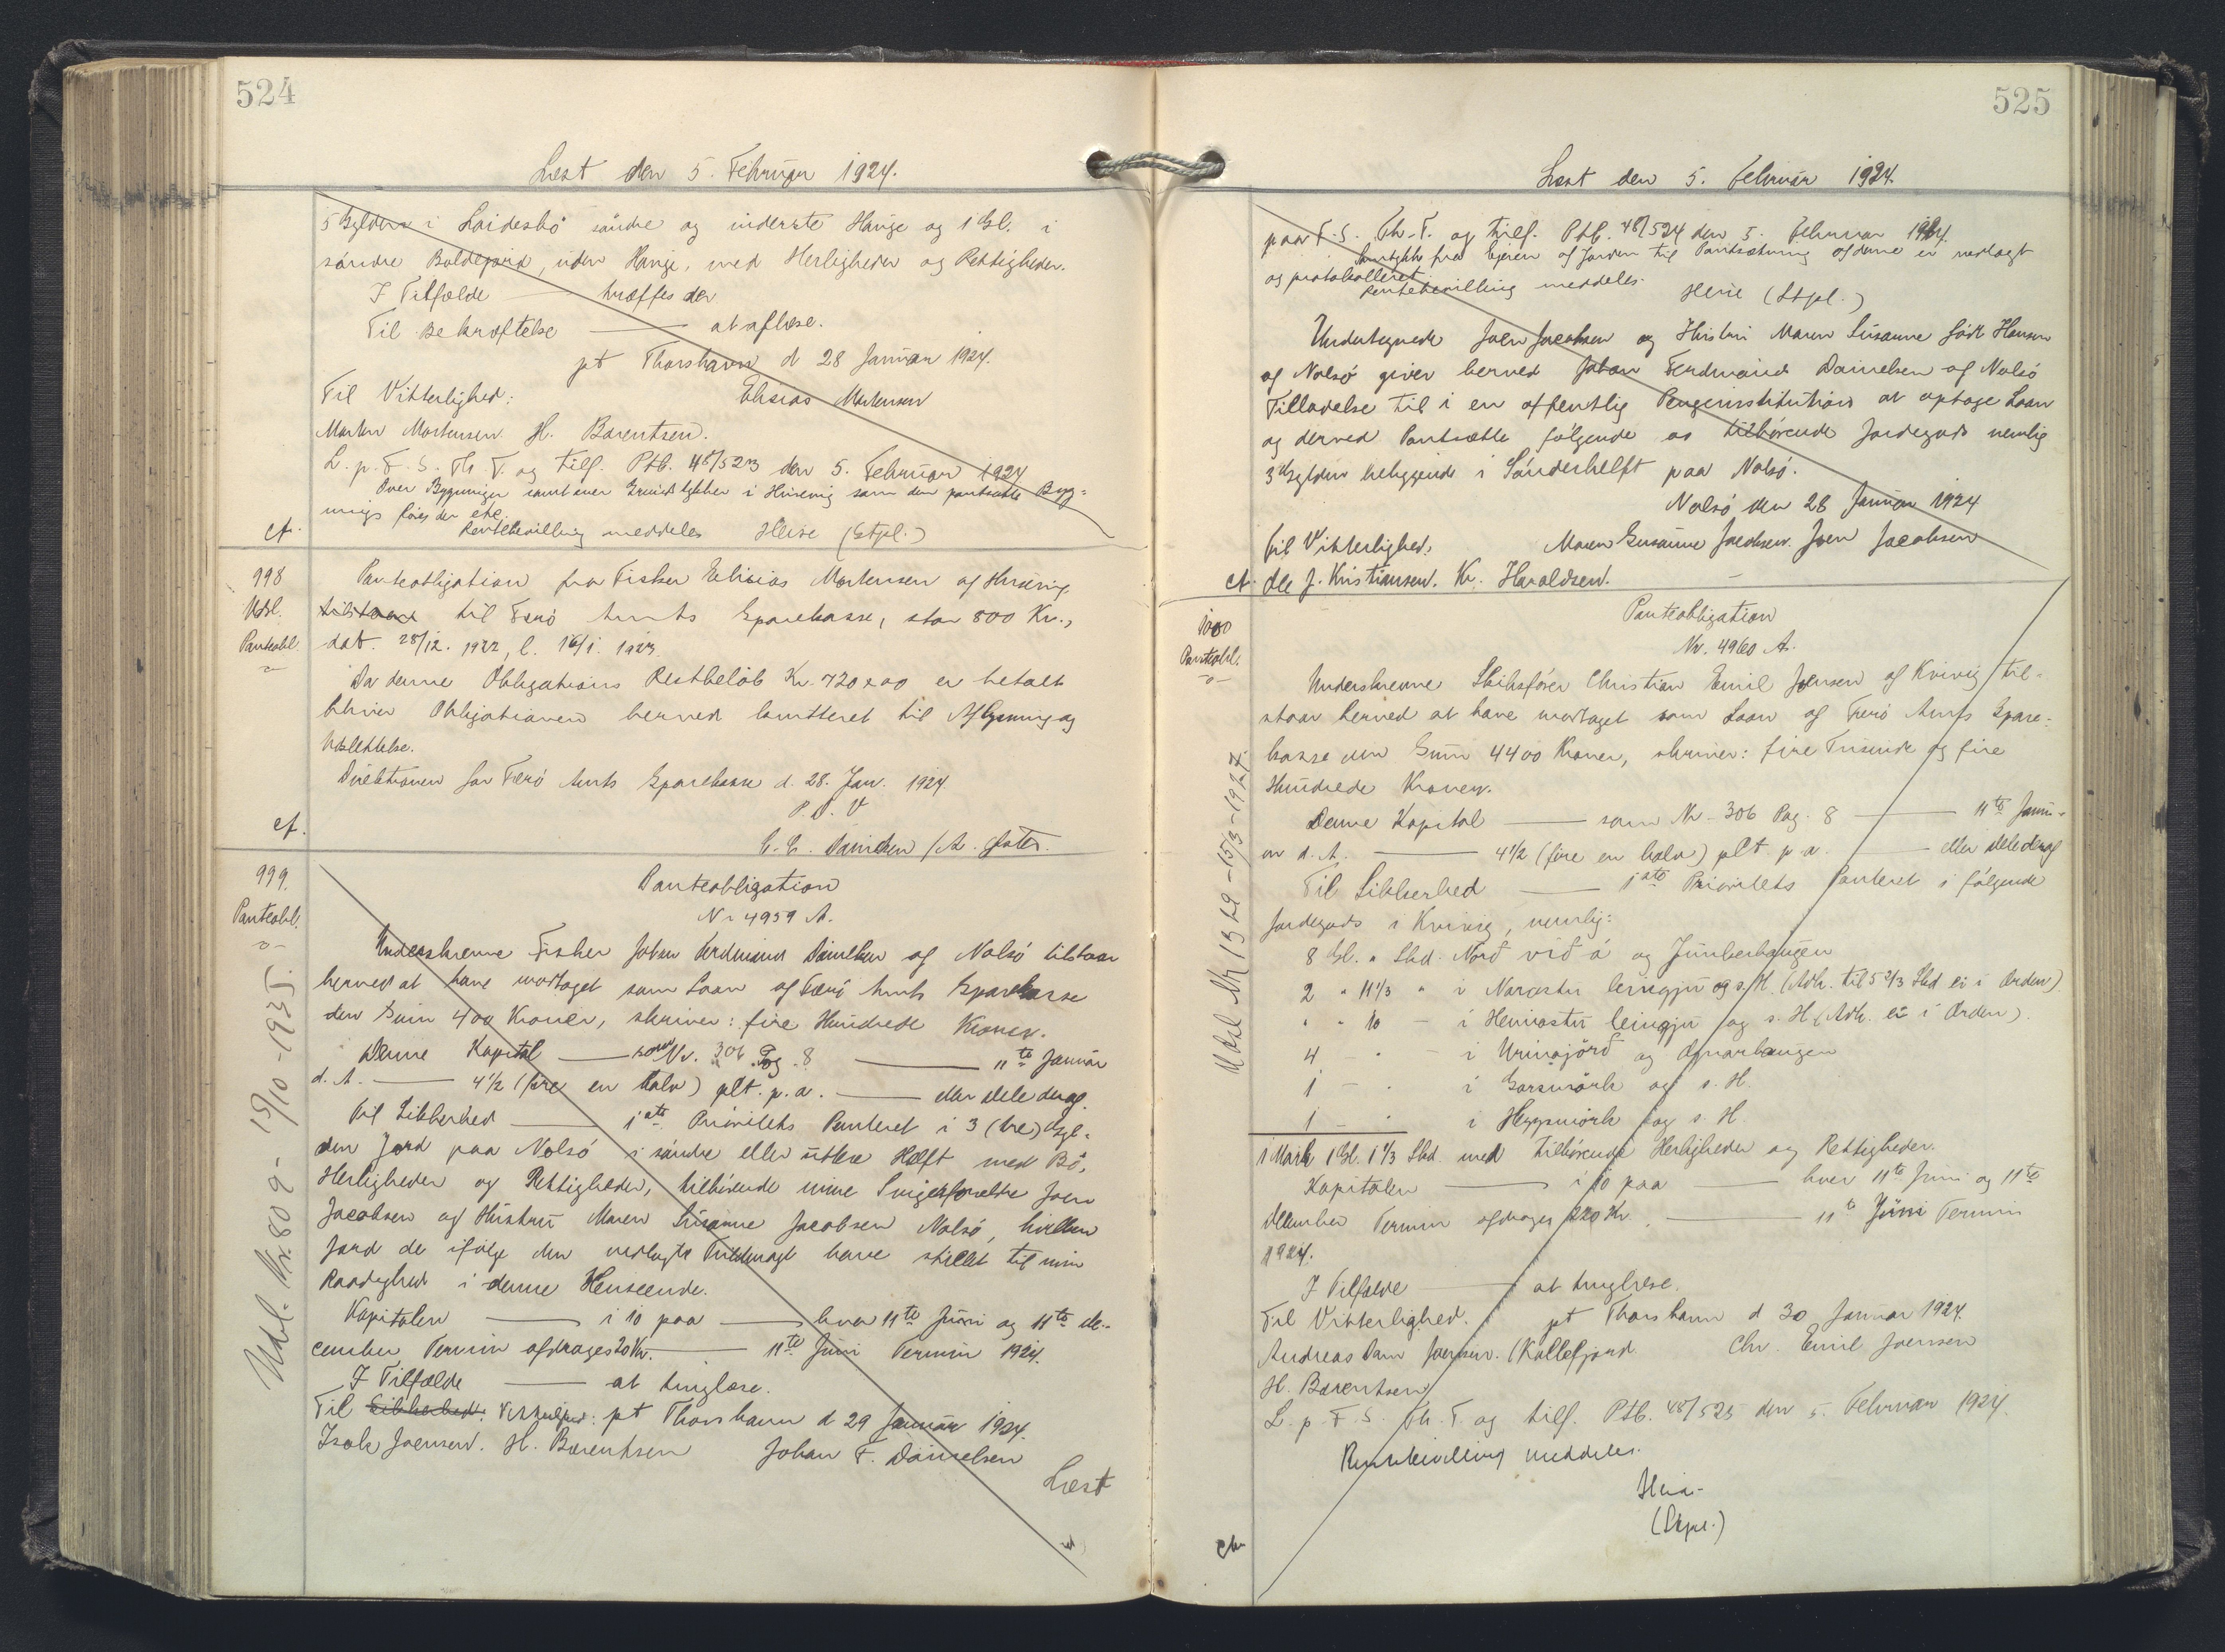 524
Læst den 5. Februar 1924.
5 Gylden i Laidesbø søndre og inderste Hauge og 1 Gl. i
søndre Bøldegjørd, uden Hauge, med Herligheder og Rettigheder.
I Tilfælde — træffes der
Til Bekræftelse — at aflæse.
pt Thorshavn d 28 Januar 1924.
Til Vitterlighed: Elisias Mortensen
Morten Mortensen. H. Barentsen.
L. p. F. S. Th. T. og tilf. Ptb. 48/523 den 5. Februar 1924
Over Bygninger samt over Grundstykker i Husevig som den pantsatte Byg-
nings føies der ete.
Rentebevilling meddeles Heise (Stpl.)
cf.
998
Udsl.
Panteobl.
Panteobligation fra Fisker Elisias Mortensen af Husevig
tilstaar til Færø Amts Sparekasse, stor 800 Kr.,
dat. 28/12. 1922, l. 16/1. 1923
Da denne Obligations Restbeløb Kr. 720 x 00 er betalt
bliver Obligationen herved kvitteret til Aflysning og
Udslettelse.
Direktionen for Færø Amts Sparekasse d. 28. Jan. 1924
P. D. V
C. C. Danielsen /A.
cf.
999.
Panteobl.
Udsl. Nr. 809 - 15/10 - 1935.
Panteobligation
Nr 4959 A.
Underskrevne Fisker Johan Ferdinand Danielsen af Nolsø tilstaar
herved at have modtaget som Laan af Færø Amts Sparekasse
den Sum 400 Kroner, skriver: fire Hundrede Kroner.
Denne Kapital — som Nr. 306 Pag. 8 — 11te Januar
d. A. — 4 1/2 (fire en halv) pct. p. a. — eller dele deraf.
Til Sikkerhed — 1ste Prioritets Panteret i 3 (tre) Gyl-
den Jord paa Nolsø i søndre eller ittere Hælft med Bø,
Herligheder og Rettigheder, tilhørende mine Svigerforældre Joen
Jacobsen og Hustru Maren Susanne Jacobsen Nolsø, hvilken
Jord de ifølge den vedlagte Fuldmagt have stillet til min
Raadighed i denne Henseende.
Kapitalen — i 10 paa — hver 11te Juni og 11te De-
cember Termin afdrages 20 Kr. — 11te Juni Termin 1924.
I Tilfælde — at tinglæse.
Til Sikkerhed: Vitterlighed: pt Thorshavn d 29 Januar 1924.
Isak Joensen. H. Barentsen Johan F. Danielsen
Læst
525
Læst den 5. Februar 1924.
paa F. S. Th. T. og tilf. Ptb. 48/524 den 5. Februar 1924.
Samtykke fra Ejeren af Jorden til Pantsætning af denne er vedlagt
og protokolleret.
Rentebevilling meddeles. Heise (Stpl.)
Undertegnede Joen Jacobsen og Hustru Maren Susanne født Hansen
af Nolsø giver herved Johan Ferdinand Danielsen af Nolsø
Tilladelse til i en offentlig Pengeinstitution at optage Laan
og derved Pantsætte følgende os tilhørende Jordegods nemlig
3 Gylden beliggende i Sønderhelft paa Nolsø.
Nolsø den 28 Januar 1924
Til Vitterlighed, Maren Susanne Jacobsen. Joen Jacobsen
cf. Ole J. Kristiansen. Kr. Haraldsen.
1000
Panteobl.
Udsl Nr 1329 - 15/3 - 1927.
Panteobligation
Nr. 4960 A.
Underskrevne Skibsfører Christian Emil Joensen af Kvivig til-
staar herved at have modtaget som Laan af Færø Amts Spare-
kasse den Sum 4400 Kroner, skriver: fire Tusinde og fire
Hundrede Kroner.
Denne Kapital — som Nr. 306 Pag. 8 — 11te Janu-
ar d. A. — 4 1/2 (fire en halv) pct. p. a. — eller dele deraf
Til Sikkerhed — 1ste Prioritets Panteret i følgende
Jordegods i Kvivig, nemlig:
8 Gl. " Skd. Norð við á og Junkerhaugen
2 " 11 1/3 " i Narastu leingju og s. H. (Adk. til 5 2/3 Skd ei i Orden)
" " 10 - i Heimastu leingju og s. H. (Adk. ei i Orden).
4 " - i Urinajörð og Omarhaugen
1 - " i Garsmörk og s. H.
1 - " i Heygsmörk og s. H
1 Mark 1 Gl. 1 1/3 Skd. med tilhørende Herligheder og Rettigheder.
Kapitalen — i 10 paa — hver 11te Juni og 11te
December Termin afdrages 220 Kr. — 11te Juni Termin
1924.
I Tilfælde — at tinglæse.
Til Vitterlighed. pt Thorshavn d 30 Januar 1924.
Andreas Dam Joensen. (Kollefjord Chr. Emil Joensen
H. Barentsen
L. p. F. S. Th. T. og tilf. Ptb. 48/525 den 5. Februar 1924.
Rentebevilling meddeles.
Heise
(Stpl.)